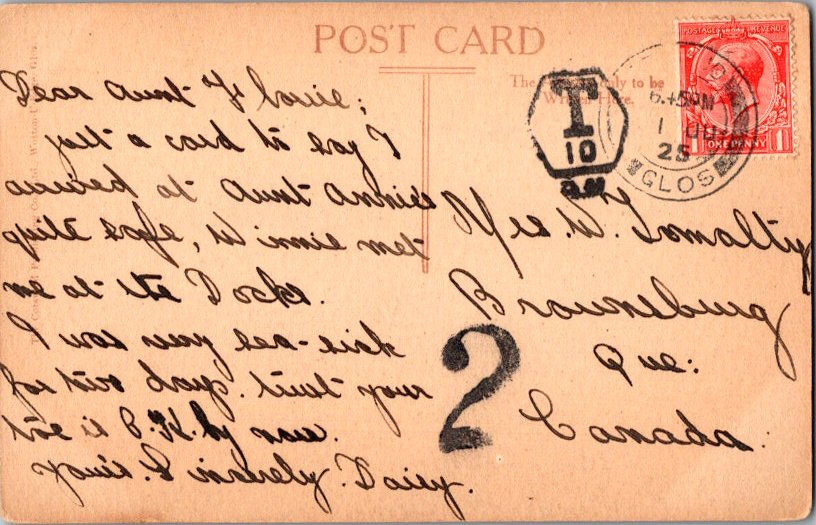 POST CARD
The Address only to be
Written Here.
POSTAGE REVENUE
1 ONE PENNY 1
6.45 PM
1
25
GLOS
T
10
Dear Aunt Florrie;
just a card to say I
arrived at Aunt Annie's
quite safe, Winnie met
me at the Docks.
I was very sea-sick
for two days. trust your
toe is O.K. by now.
Yours Sincerely. Daisy.
Mrs. W. Tomalty
Brownsburg
Que:
Canada.
2